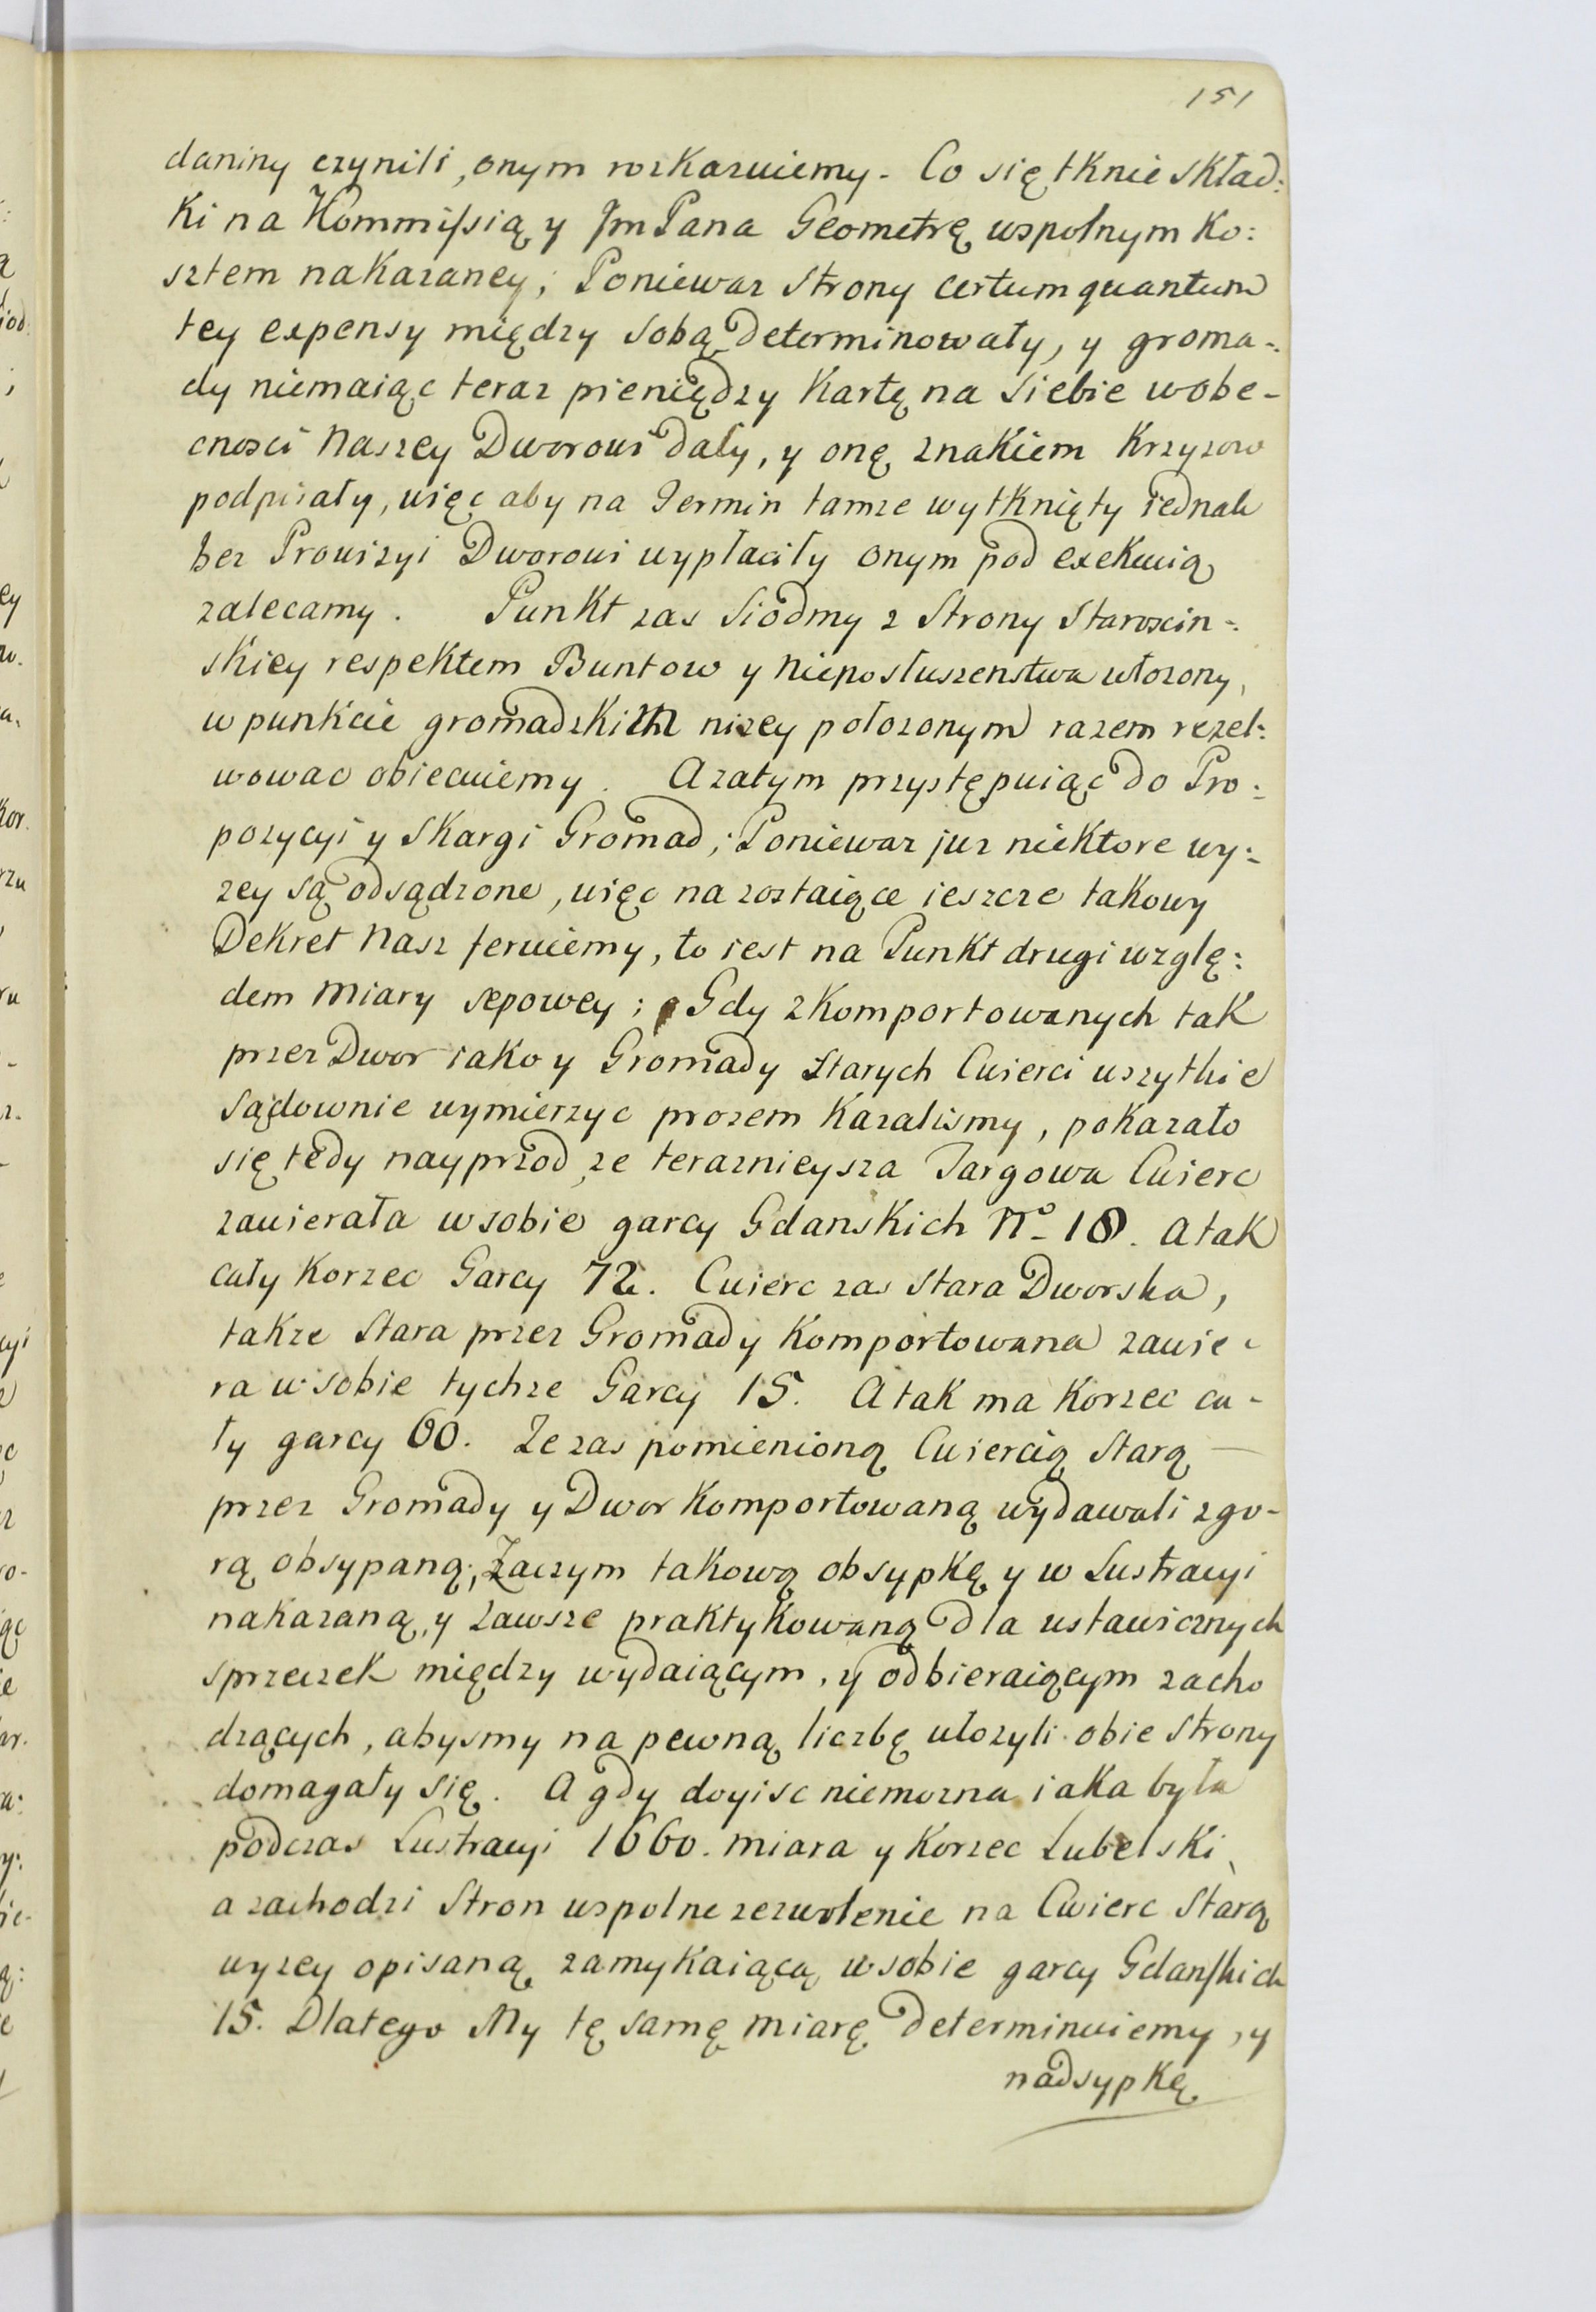 151
daniny czynili, onym rozkazuiemy. Co się tknie skład:
ki na Kommissią y Jm Pana Geometrę wspolnym ko:
sztem nakazaney; Poniewaz Strony certum quantum
tey expensy między sobą determinowały, y groma-
dy niemaiąc teraz pieniędzy Kartę na siebie wobe-
cnosci Naszey Dworowi dały, y onę znakiem Krzyzow
podpisały, więc aby na Termin tamze wytknięty iednak
bez Prowizyi Dworowi wypłaciły onym pod exekucią
zalecamy. Punkt zas Siodmy z Strony Staroscin-
skiey respektem Buntow y Nieposłuszenstwa ułozony,
w punkcie gromadzkim nizey połozonym razem rezol:
wowac obiecuiemy. A zatym przystępuiąc do Pro:
pozycyi y Skargi Gromad; Poniewaz juz niektore wy:
zey są odsądzone, więc na zostaiące ieszcze takowy
Dekret Nasz feruiemy, to iest na Punkt drugi wzglę:
dem Miary sepowey; Gdy z komportowanych tak
przez Dwor iako y Gromady Starych Cwierci wszytkie
Sądownie wymierzyc prozem kazalismy, pokazało
się tedy nayprzod ze teraznieysza Targowa Cwierc
zawierała w sobie garcy Gdanskich No 18. A tak
cały Korzec Garcy 72. Cwierc zas Stara Dworska,
takze Stara przez Gromady Komportowana zawie-
ra w sobie tychze Garcy 15. A tak ma Korzec ca-
ły garcy 60. Ze zas pomienioną Cwiercią Starą
przez Gromady y Dwor Komportowaną wydawali z go-
rą obsypaną; Zaczym takową obsypkę y w Lustracyi
nakazaną, y zawsze praktykowaną dla ustawicznych
sprzeczek między wydaiącym, y odbieraiącym zacho
dzących, abysmy na pewną liczbę ułozyli obie Strony
domagały się. A gdy doyisc niemozna iaka była
podczas Lustracyi 1660. miara y Korzec Lubelski,
a zachodzi Stron wspolne zezwolenie na Cwierc Starą
wyzey opisaną, zamykaiącą w sobie garcy Gdanskich
15. Dlatego My tę samę miarę determinuiemy, y
nadsypkę